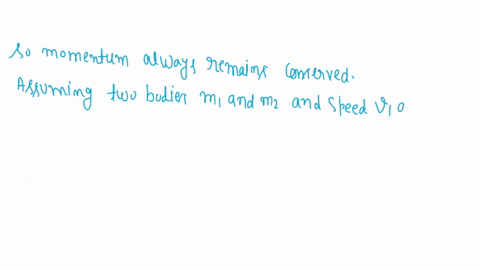 so momentum always remains conserved.
Assuming two bodies m₁ and m₂ and speed v₁ a